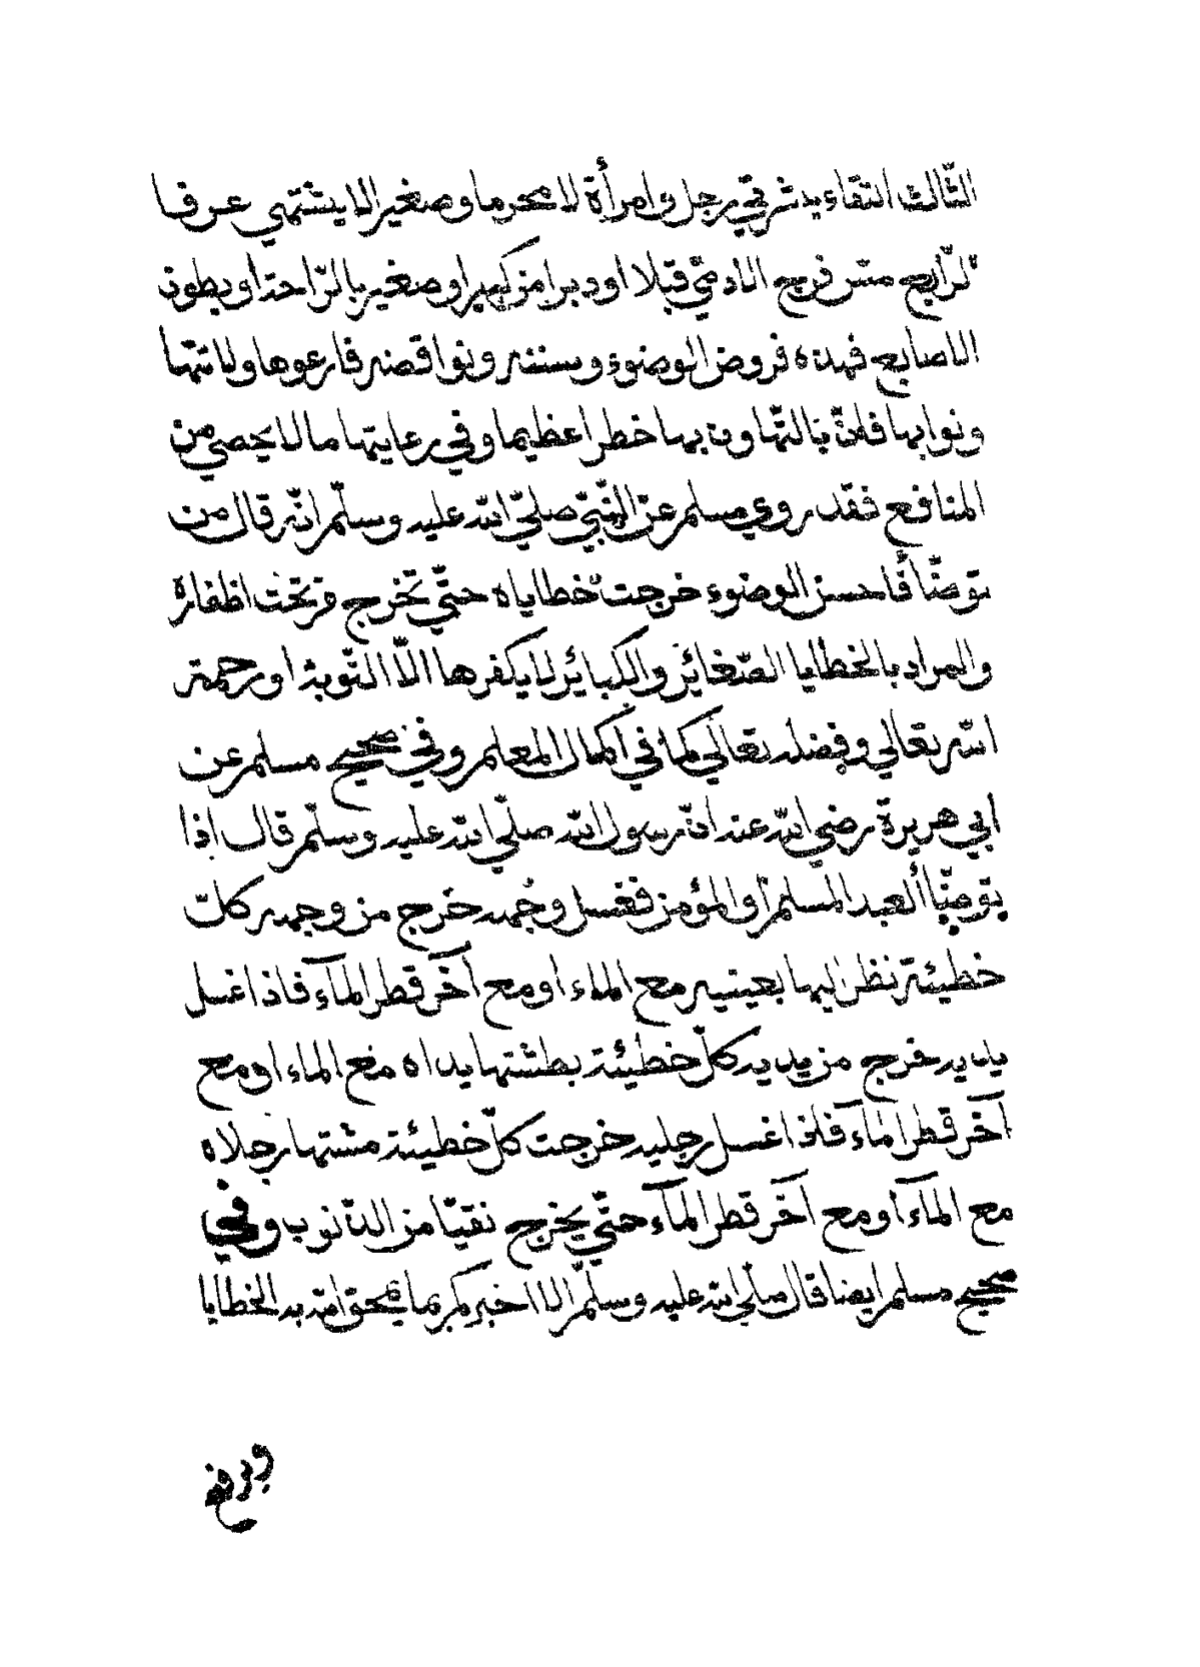 الثّالث التقاء بشرتي رجل وامرأة لا محرما وصغيرا لا يشتهي عرفا
الرّابع مسّ فرج الادميّ قبلا او دبرا من كبير او صغير بالرّاحة او بطون
الاصابع فهذه فروض الوضوء وسننه ونواقضه فارعوها ولا تتها
ونوا بها فانّ بالتّهاون بها خطرا عظيما وفي رعايتها ما لا يحصي من
المنافع فقد روي مسلم عن النّبيّ صلّي الله عليه وسلّم انّه قال من
توضّأ فاحسن الوضوء خرجت خطاياه حتّي تخرج من تحت اظفاره
والمراد بالخطايا الصّغائر والكبائر لا يكفرها الاّ التّوبة او رحمة
الله تعالي وفضله تعالي كما في اكمال المعلم وفي صحيح مسلم عن
ابي هريرة رضي الله عنه انّ رسول الله صلّي الله عليه وسلّم قال اذا
توضّأ العبد المسلم أو المؤمن فغسل وجهه خرج من وجهه كلّ
خطيئة نظر اليها بعينيه مع الماء او مع آخر قطر المآء فاذا غسل
يديه خرج من يديه كلّ خطيئة بطشتها يداه مع الماء او مع
آخر قطر المآء فاذا غسل رجليه خرجت كلّ خطيئة مشتها رجلاه
مع المآء او مع آخر قطر المآء حتّي يخرج نقيّا من الذّنوب وفي
صحيح مسلم ايضا قال صلّي الله عليه وسلّم الا اخبركم بما يمحق الله به الخطايا
ويرفع